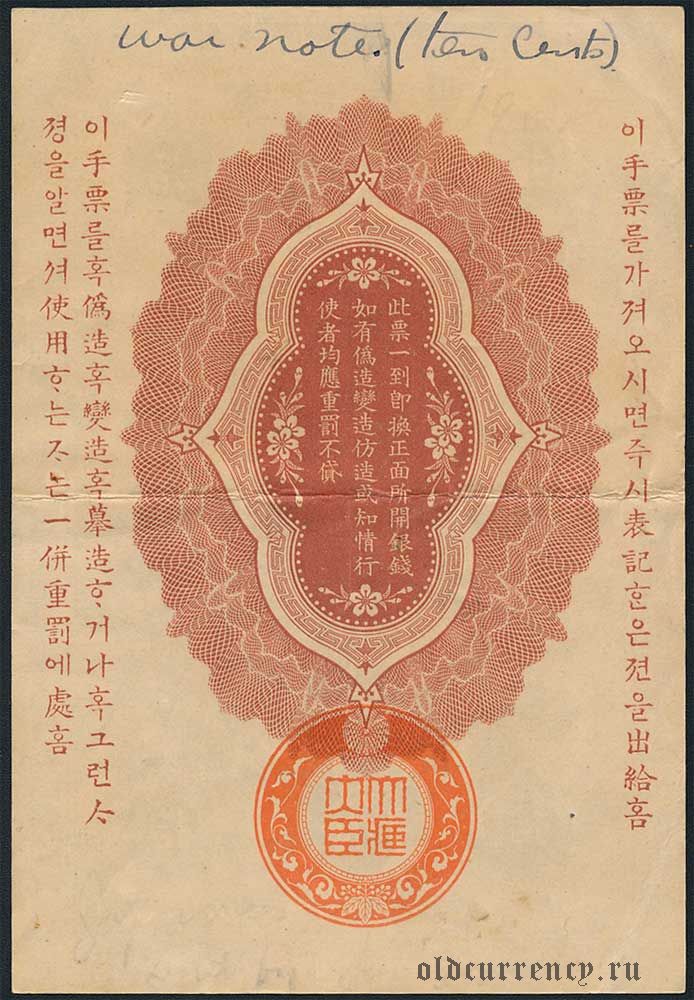 war note. (ten Cents).
이手票를가져오시면즉시表記ᄒᆞᆫ은젼을出給홈
此票一到卽換正面所開銀錢
如有僞造變造仿造或知情行
使者均應重罰不貸
이手票를혹僞造혹變造혹摹造ᄒᆞ거나혹그런ᄉᆞ
졍을알면셔使用ᄒᆞ는ᄌᆞ는一併重罰에處홈
大藏
大臣
oldcurrency.ru